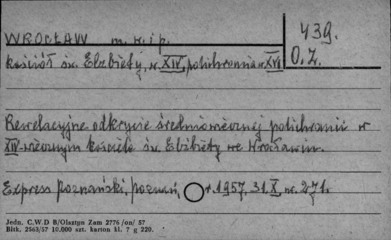 WROCŁAW m. w. i p. 439.
kościół św. Elżbiety, w. XIV, polichromia w. XVI O.Z.
Rewelacyjne odkrycie średniowiecznej polichromii w
XIV-wiecznym kościele św. Elżbiety we Wrocławiu.
Express Poznański, Poznań, r. 1957, 31.X nr. 271.
Jedn. C.W.D B/Olsztyn Zam 2776/on/ 57
Bltk. 2563/57 10.000 szt. karton kl. 7 g 220.